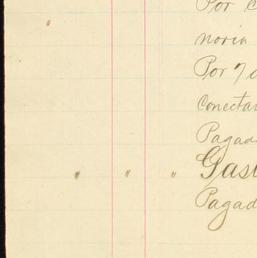 Por
noria
Por 7 d
conectar
Pagad
" " " Gast
Pagad